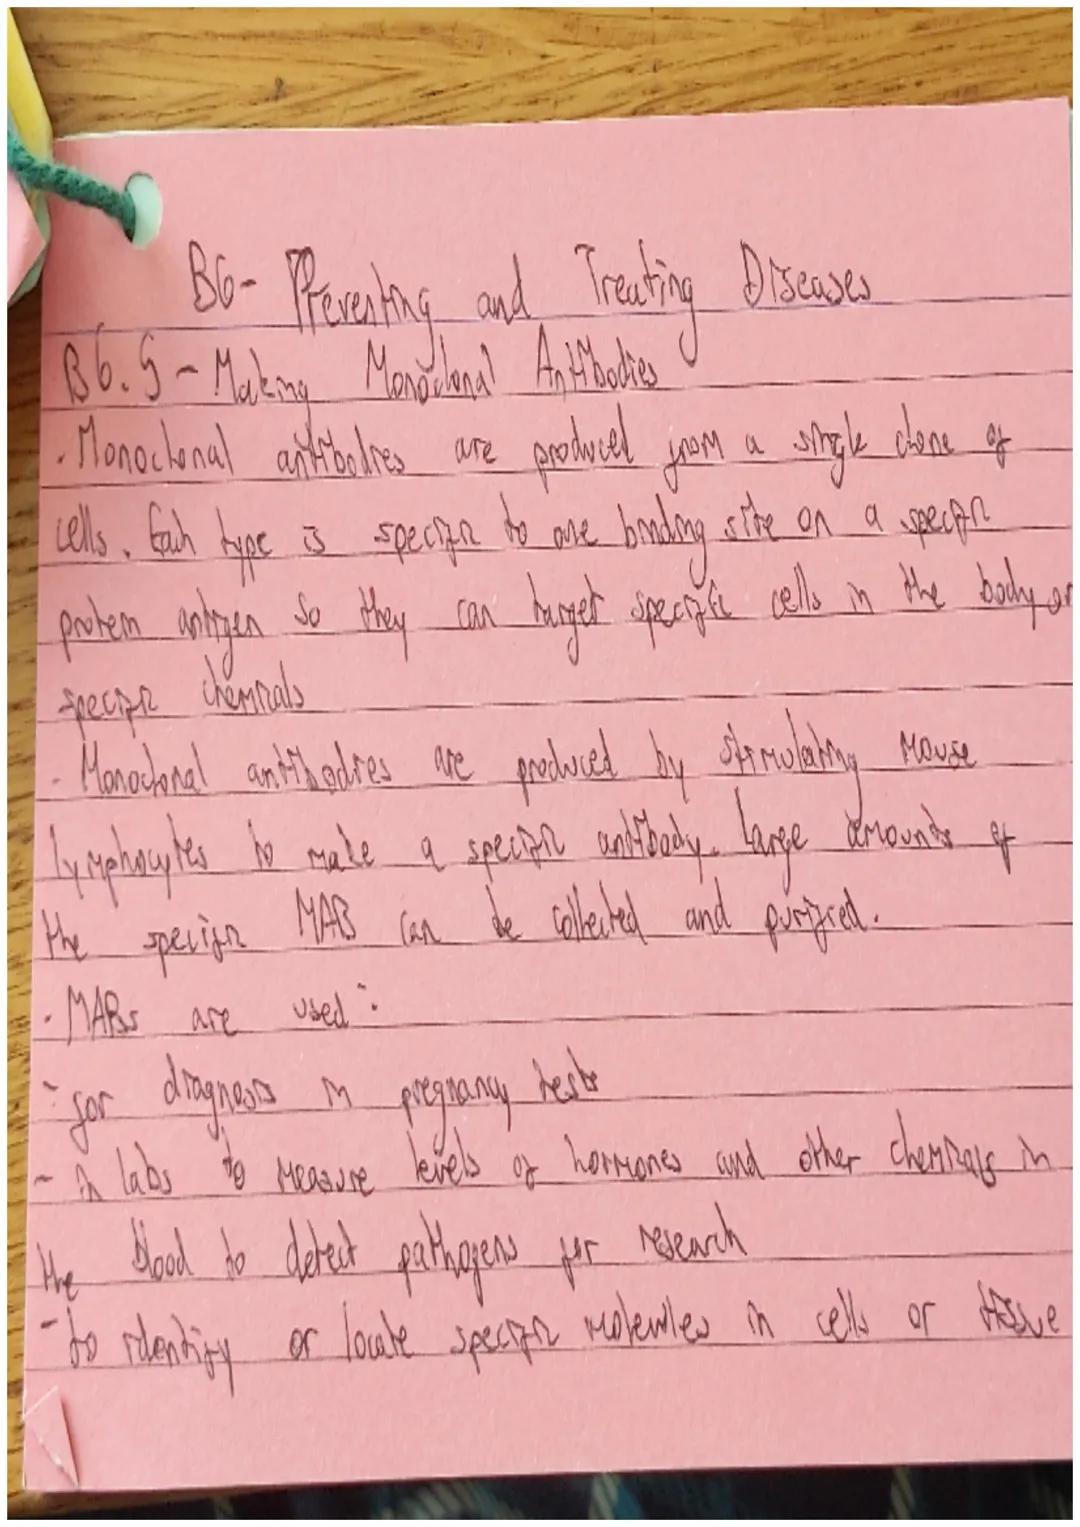 B6- Preventing and Treating Diseases
B6.5 - Making Monoclonal Antibodies
· Monoclonal antibodies are produced from a single clone of
cells. Each type is specific to one binding site on a specific
protein antigen so they can target specific cells in the body or
specific chemicals
- Monoclonal antibodies are produced by stimulating mouse
lymphocytes to make a specific antibody. Large amounts of
the specific MAB can be collected and purified.
· MABs are used:
- for diagnosis in pregnancy tests
- in labs to measure levels of hormones and other chemicals in
the blood to detect pathogens for research
- to identify or locate specific molecules in cells or tissue